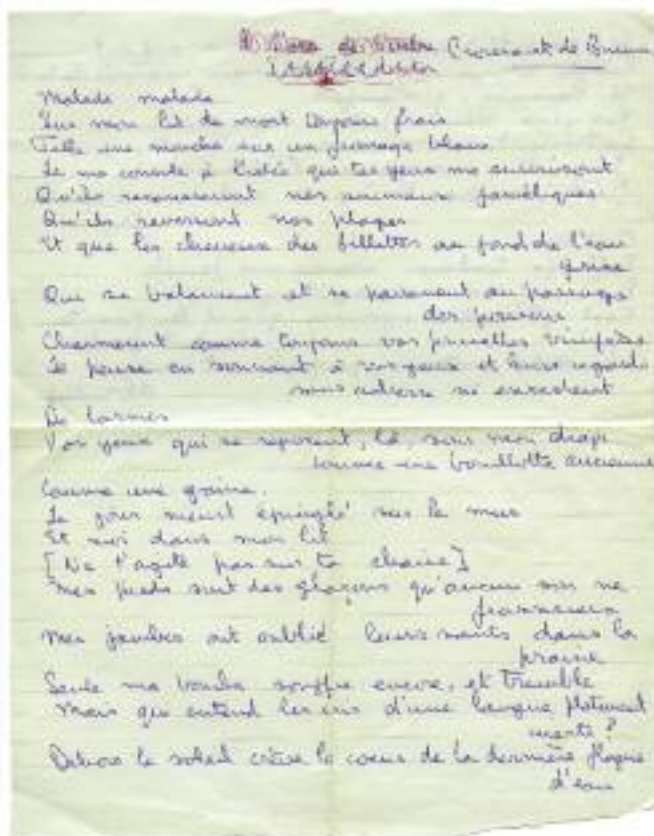 Croissant de Brume
Malade malade
Sur mon lit de mort toujours frais
Telle une mouche sur un fromage blanc
Je me console à l'idée que tes yeux me survivront
Qu'ils reverront nos animaux faméliques
Qu'ils reverront nos plages
Et que les cheveux des fillettes au fond de l'eau
grise
Qui se balancent et se pavanent au passage
des
Charmeront comme toujours vos prunelles
Je pense en souriant à vos yeux et leurs regards
sans adresse ni
De larmes
Vos yeux qui se reposent, là, sous mon drap
comme une bouillotte ancienne
Comme une graine.
Le jour meurt épinglé sur le mur
Et moi dans mon lit
[Ne t'agite pas sur ta chaise]
Mes pieds sont des glaçons qu'aucun ne
Mes jambes ont oublié leurs sauts dans la
prairie
Seule ma bouche souffre encore, et tremble
Mais qui entend les cris d'une langue
morte?
Dehors le soleil crève le coeur de la dernière flaque
d'eau